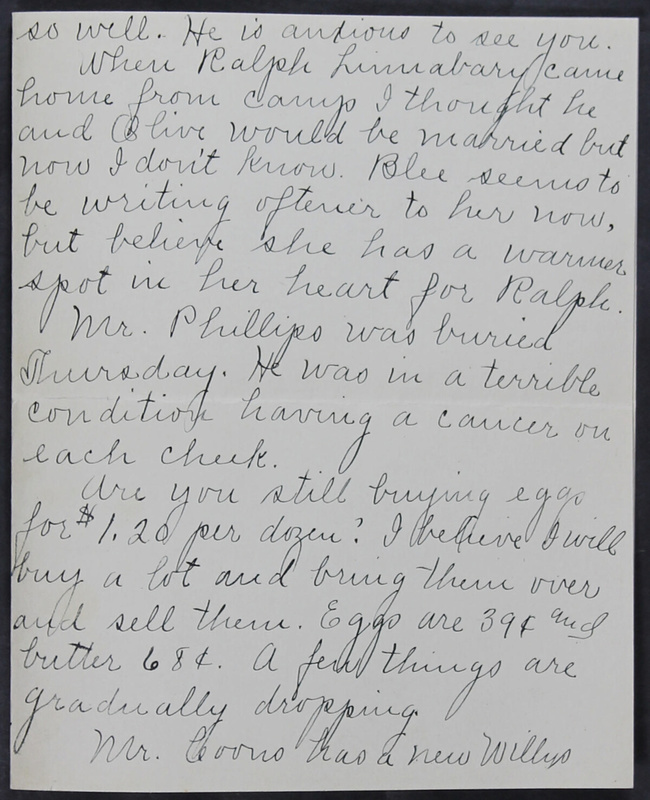 so well. He is anxious to see you.
When Ralph Linnabary came
home from camp I thought he
and Olive would be married but
now I don't know. Blee seems to
be writing oftener to her now,
but believe she has a warmer
spot in her heart for Ralph.
Mr. Phillips was buried
Thursday. He was in a terrible
condition having a cancer on
each cheek.
Are you still buying eggs
for $1.20 per dozen? I believe I will
buy a lot and bring them over
and sell them. Eggs are 39¢ and
butter 68¢. A few things are
gradually dropping.
Mr. Coons has a new Willys